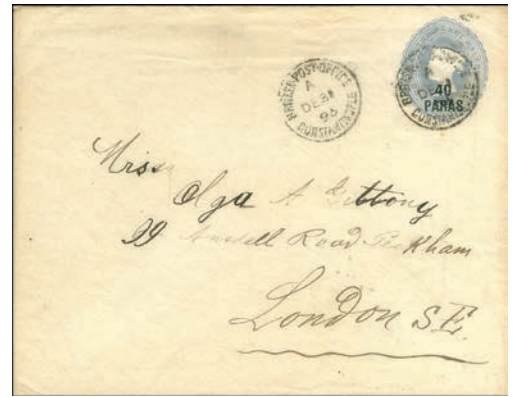 BRITISH POST OFFICE
A
DE 31
95
CONSTANTINOPLE
40
PARAS
Miss
Olga A Gittony
99 Road Peckham
London S.E.